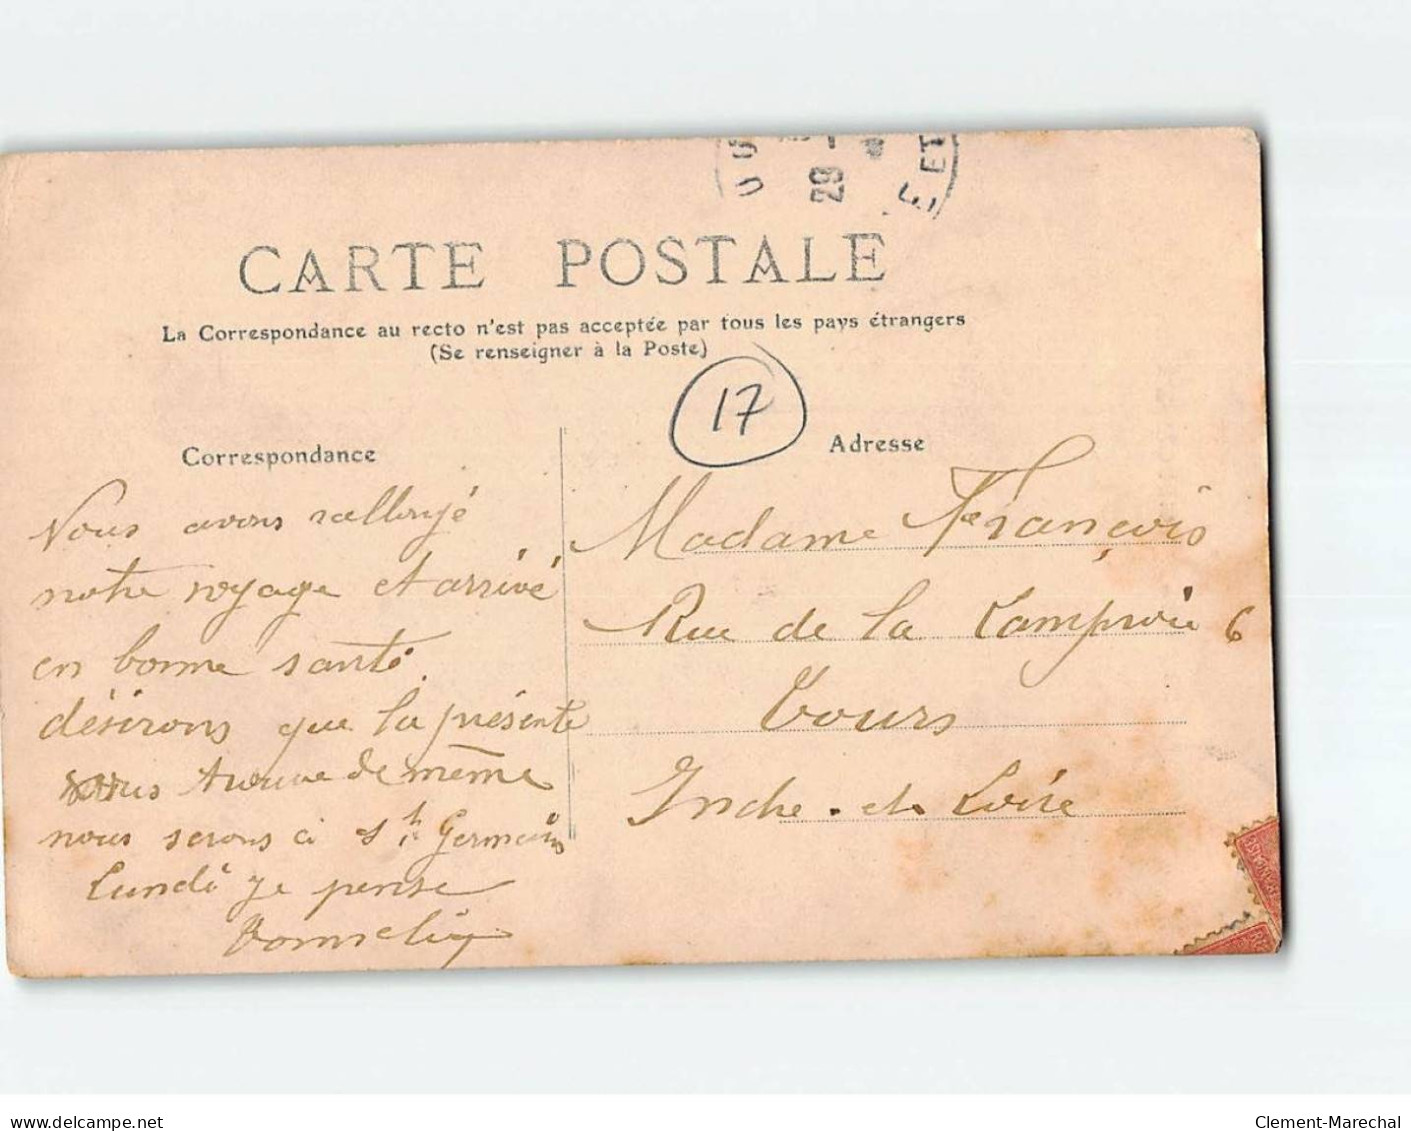 29
E ET
CARTE POSTALE
La Correspondance au recto n'est pas acceptée par tous les pays étrangers
(Se renseigner à la Poste)
17
Correspondance
Adresse
Nous avons rallongé
notre voyage et arrivé
en bonne santé.
désirons que la présente
vous treuve de même
nous serons à St Germain
Lundi je pense
Madame François
Rue de la Lamproie 6
Tours
Indre-et-Loire
delcampe.net
Clement-Marechal